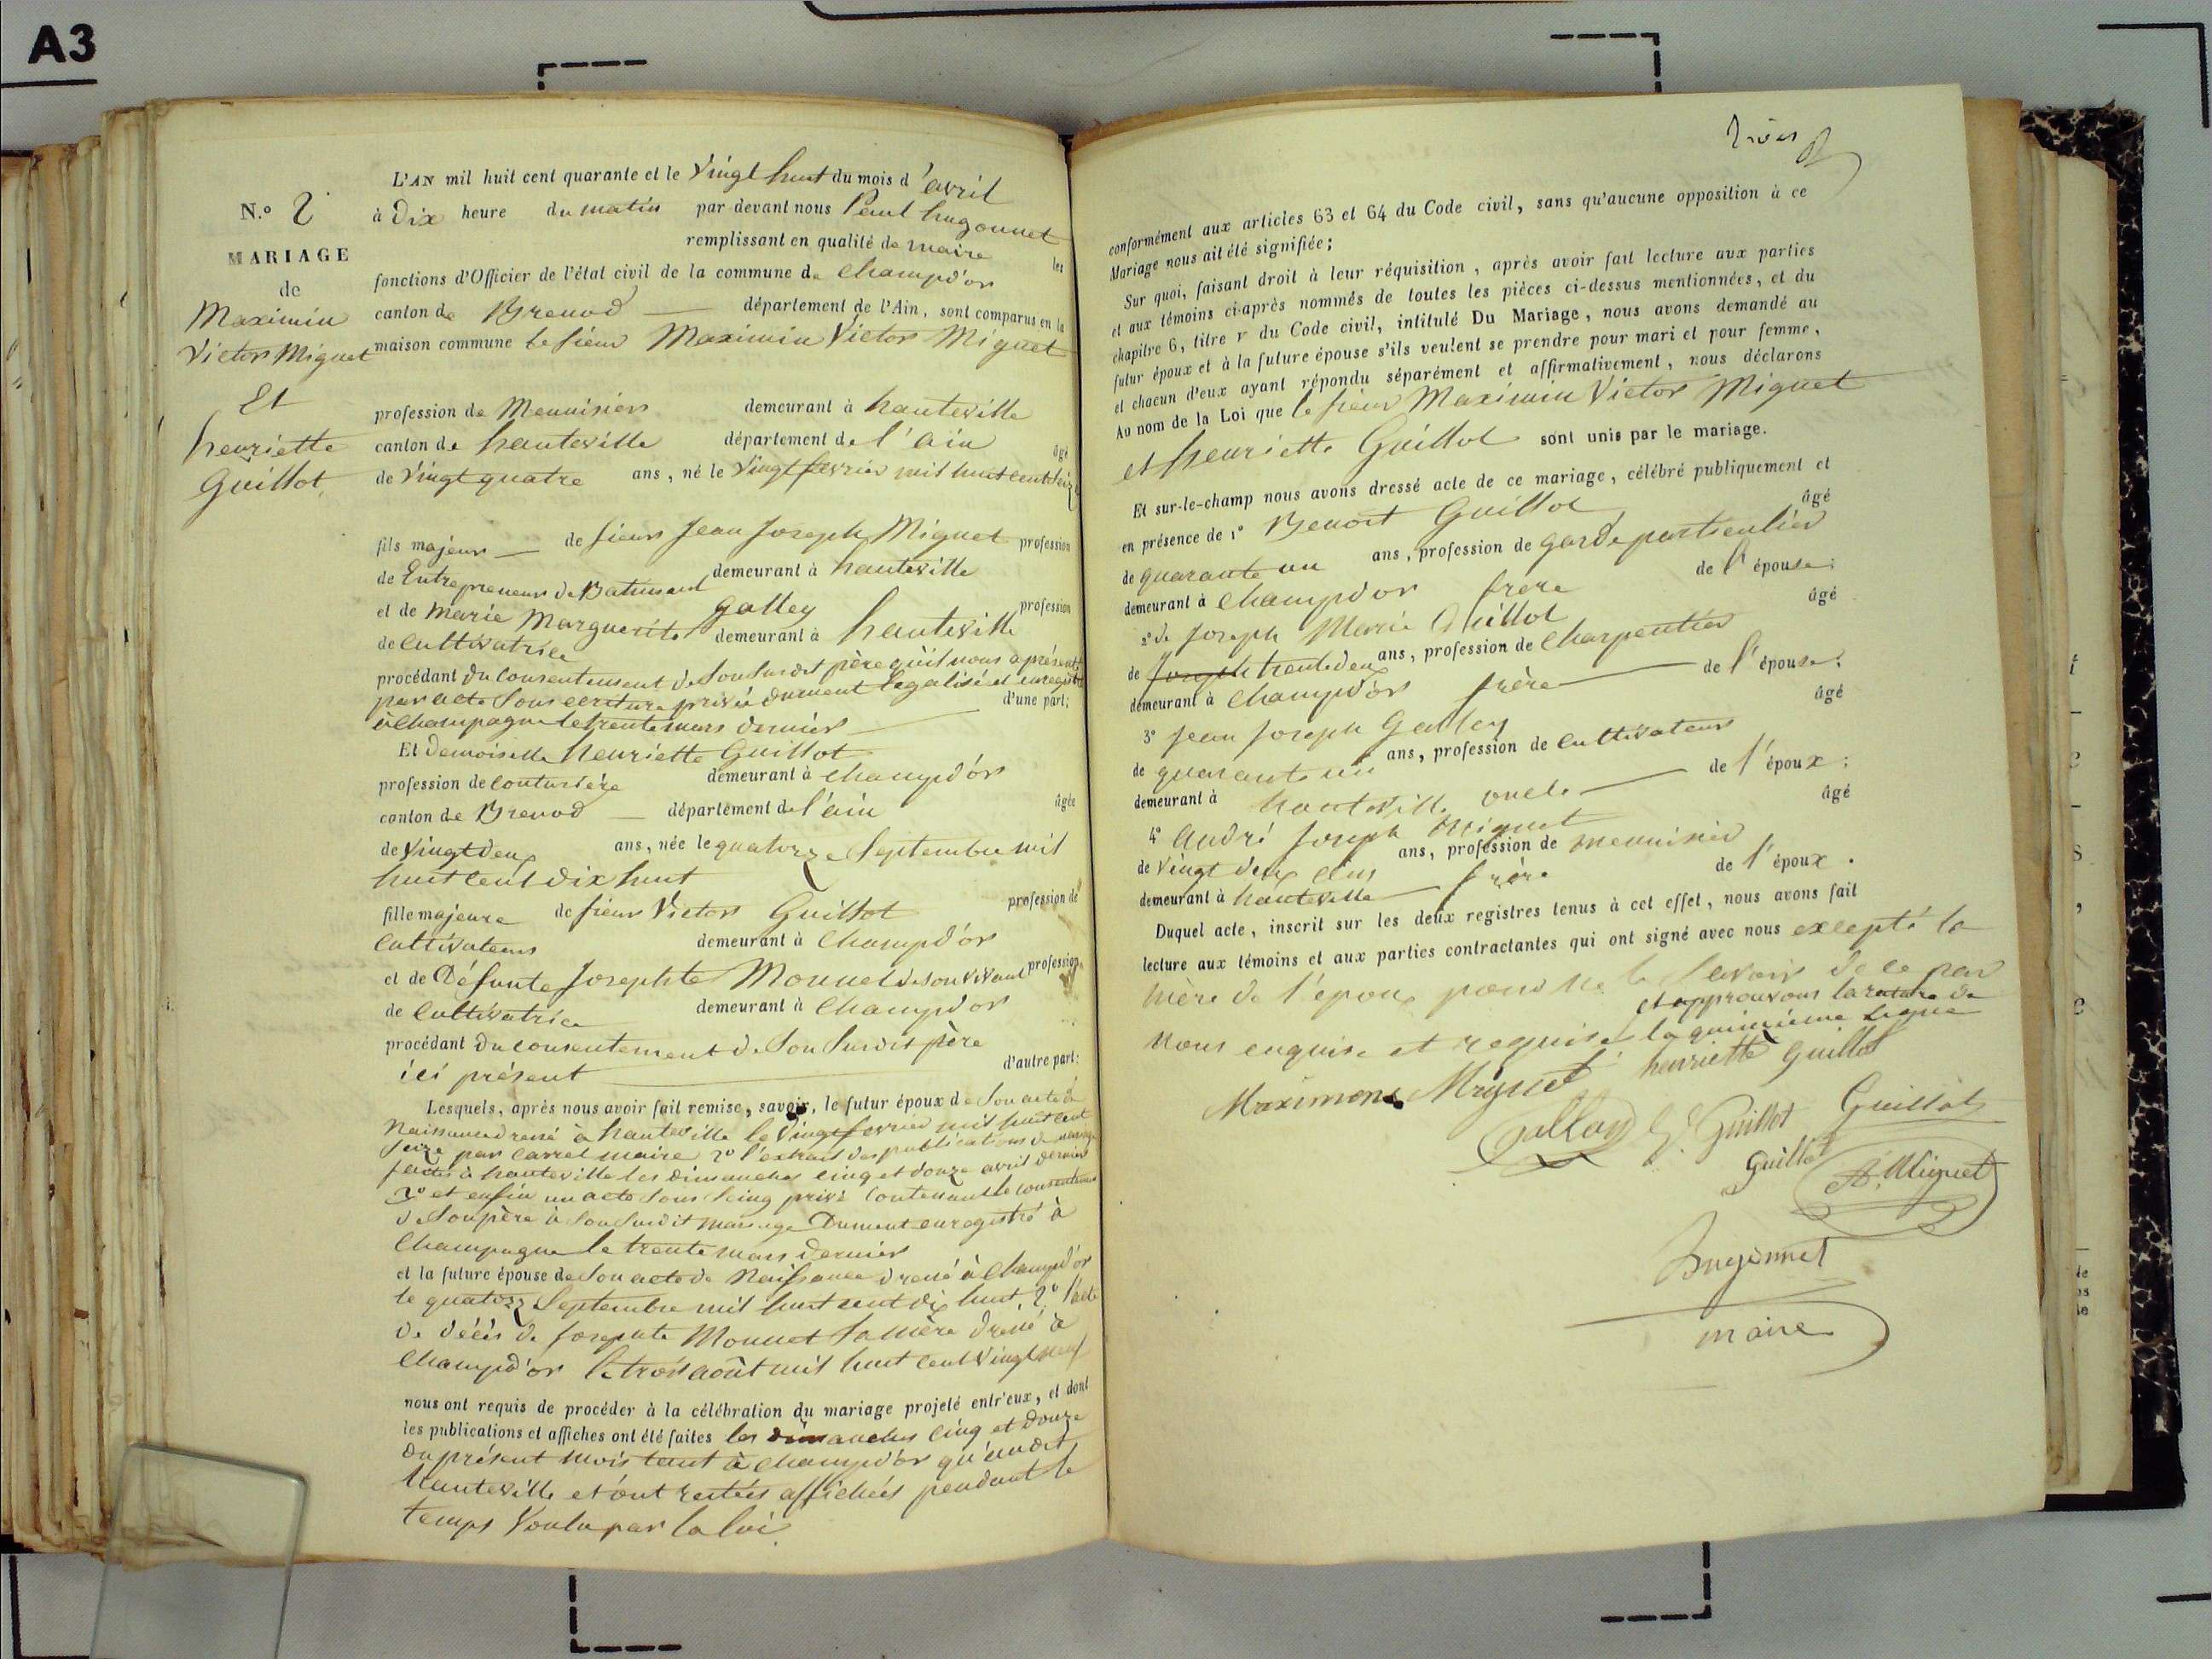 A3
N.° 2
MARIAGE
de
Maximin
Victor Miguet
Et
henriette
Guillot
L'AN mil huit cent quarante et le Vingt huit du mois d'avril
à Dix heure du matin par devant nous Paul hugonnet
remplissant en qualité de maire les
fonctions d'Officier de l'état civil de la commune de Champd'or
canton de Brenod département de l'Ain, sont comparus en la
maison commune le sieur Maximin Victor Miguet
profession de Menuisier demeurant à hauteville
canton de hauteville département de l'ain âgé
de Vingt quatre ans, né le Vingt fevrier mil huit cent Seize
fils majeur de sieur Jean Joseph Miguet profession
de Entrepreneur de Batiment demeurant à hauteville
et de Marie Marguerite Galley profession
de Cultivatrice demeurant à hauteville
procédant du consentement de Son Susdit père qu'il nous a présenté
par acte Sous ecriture privée dument legalisé et enregistré
à Champagne le trente mars dernier d'une part;
Et Demoiselle henriette Guillot
profession de Couturière demeurant à Champd'or
canton de Brenod département de l'ain âgée
de Vingt deux ans, née le quatorze Septembre mil
huit Cent Dix huit
fille majeure de sieur Victor Guillot profession de
Cultivateur demeurant à Champd'or
et de Défunte Josephte Monnet de Son Vivant profession
de Cultivatrice demeurant à Champd'or
procédant du consentement de Son Susdit père
ici présent d'autre part:
Lesquels, après nous avoir fait remise, savoir, le futur époux de Son acte de
Naissance dressé à hauteville le Vingt fevrier mil huit cent
Seize par Carrel maire 2° l'extrait des publications de mariage
faites à hauteville les dimanches cinq et douze avril dernier
3° et enfin un acte Sous Seing privé Contenant le consentement
de Son père à Son Susdit mariage Dument enregistré à
Champagne le trente mars dernier
et la future épouse de Son acte de Naissance dressé à Champd'or
le quatorze Septembre mil huit cent dix huit 2° l'acte
de décès de Josephte Monnet Sa Mère dressé à
Champd'or le trois août mil huit Cent Vingt neuf
nous ont requis de procéder à la célébration du mariage projeté entr'eux, et dont
les publications et affiches ont été faites les dimanches Cinq et Douze
du présent mois tant à Champd'or qu'audit
hauteville et ont restées affichées pendant le
temps Voulu par la loi
conformément aux articles 63 et 64 du Code civil, sans qu'aucune opposition à ce
Mariage nous ait été signifiée;
Sur quoi, faisant droit à leur réquisition, après avoir fait lecture aux parties
et aux témoins ci-après nommés de toutes les pièces ci-dessus mentionnées, et du
chapitre 6, titre v du Code civil, intitulé Du Mariage, nous avons demandé au
futur époux et à la future épouse s'ils veulent se prendre pour mari et pour femme,
et chacun d'eux ayant répondu séparément et affirmativement, nous déclarons
Au nom de la Loi que le sieur Maximin Victor Miguet
et henriette Guillot sont unis par le mariage.
Et sur-le-champ nous avons dressé acte de ce mariage, célébré publiquement et
en présence de 1° Benoit Guillot âgé
de quarante un ans, profession de garde particulier
demeurant à Champd'or frère de l'épouse;
2° de Joseph Marie Guillot âgé
de Joseph trente deux ans, profession de Charpentier
demeurant à Champd'or frère de l'épouse;
3° Jean Joseph Galley âgé
de quarante un ans, profession de Cultivateur
demeurant à hauteville oncle de l'époux;
4° André Joseph Miguet âgé
de Vingt deux ans ans, profession de menuisier
demeurant à hauteville frère de l'époux.
Duquel acte, inscrit sur les deux registres tenus à cet effet, nous avons fait
lecture aux témoins et aux parties contractantes qui ont signé avec nous excepté la
Mère de l'époux pour ne le Savoir de ce par
Nous enquise et requise et approuvons la rature de
la quinzième Ligne
Maximin Miguet henriette guillot
Galley Guillot Guillot
Guillot A. Miguet
hugonnet
maire